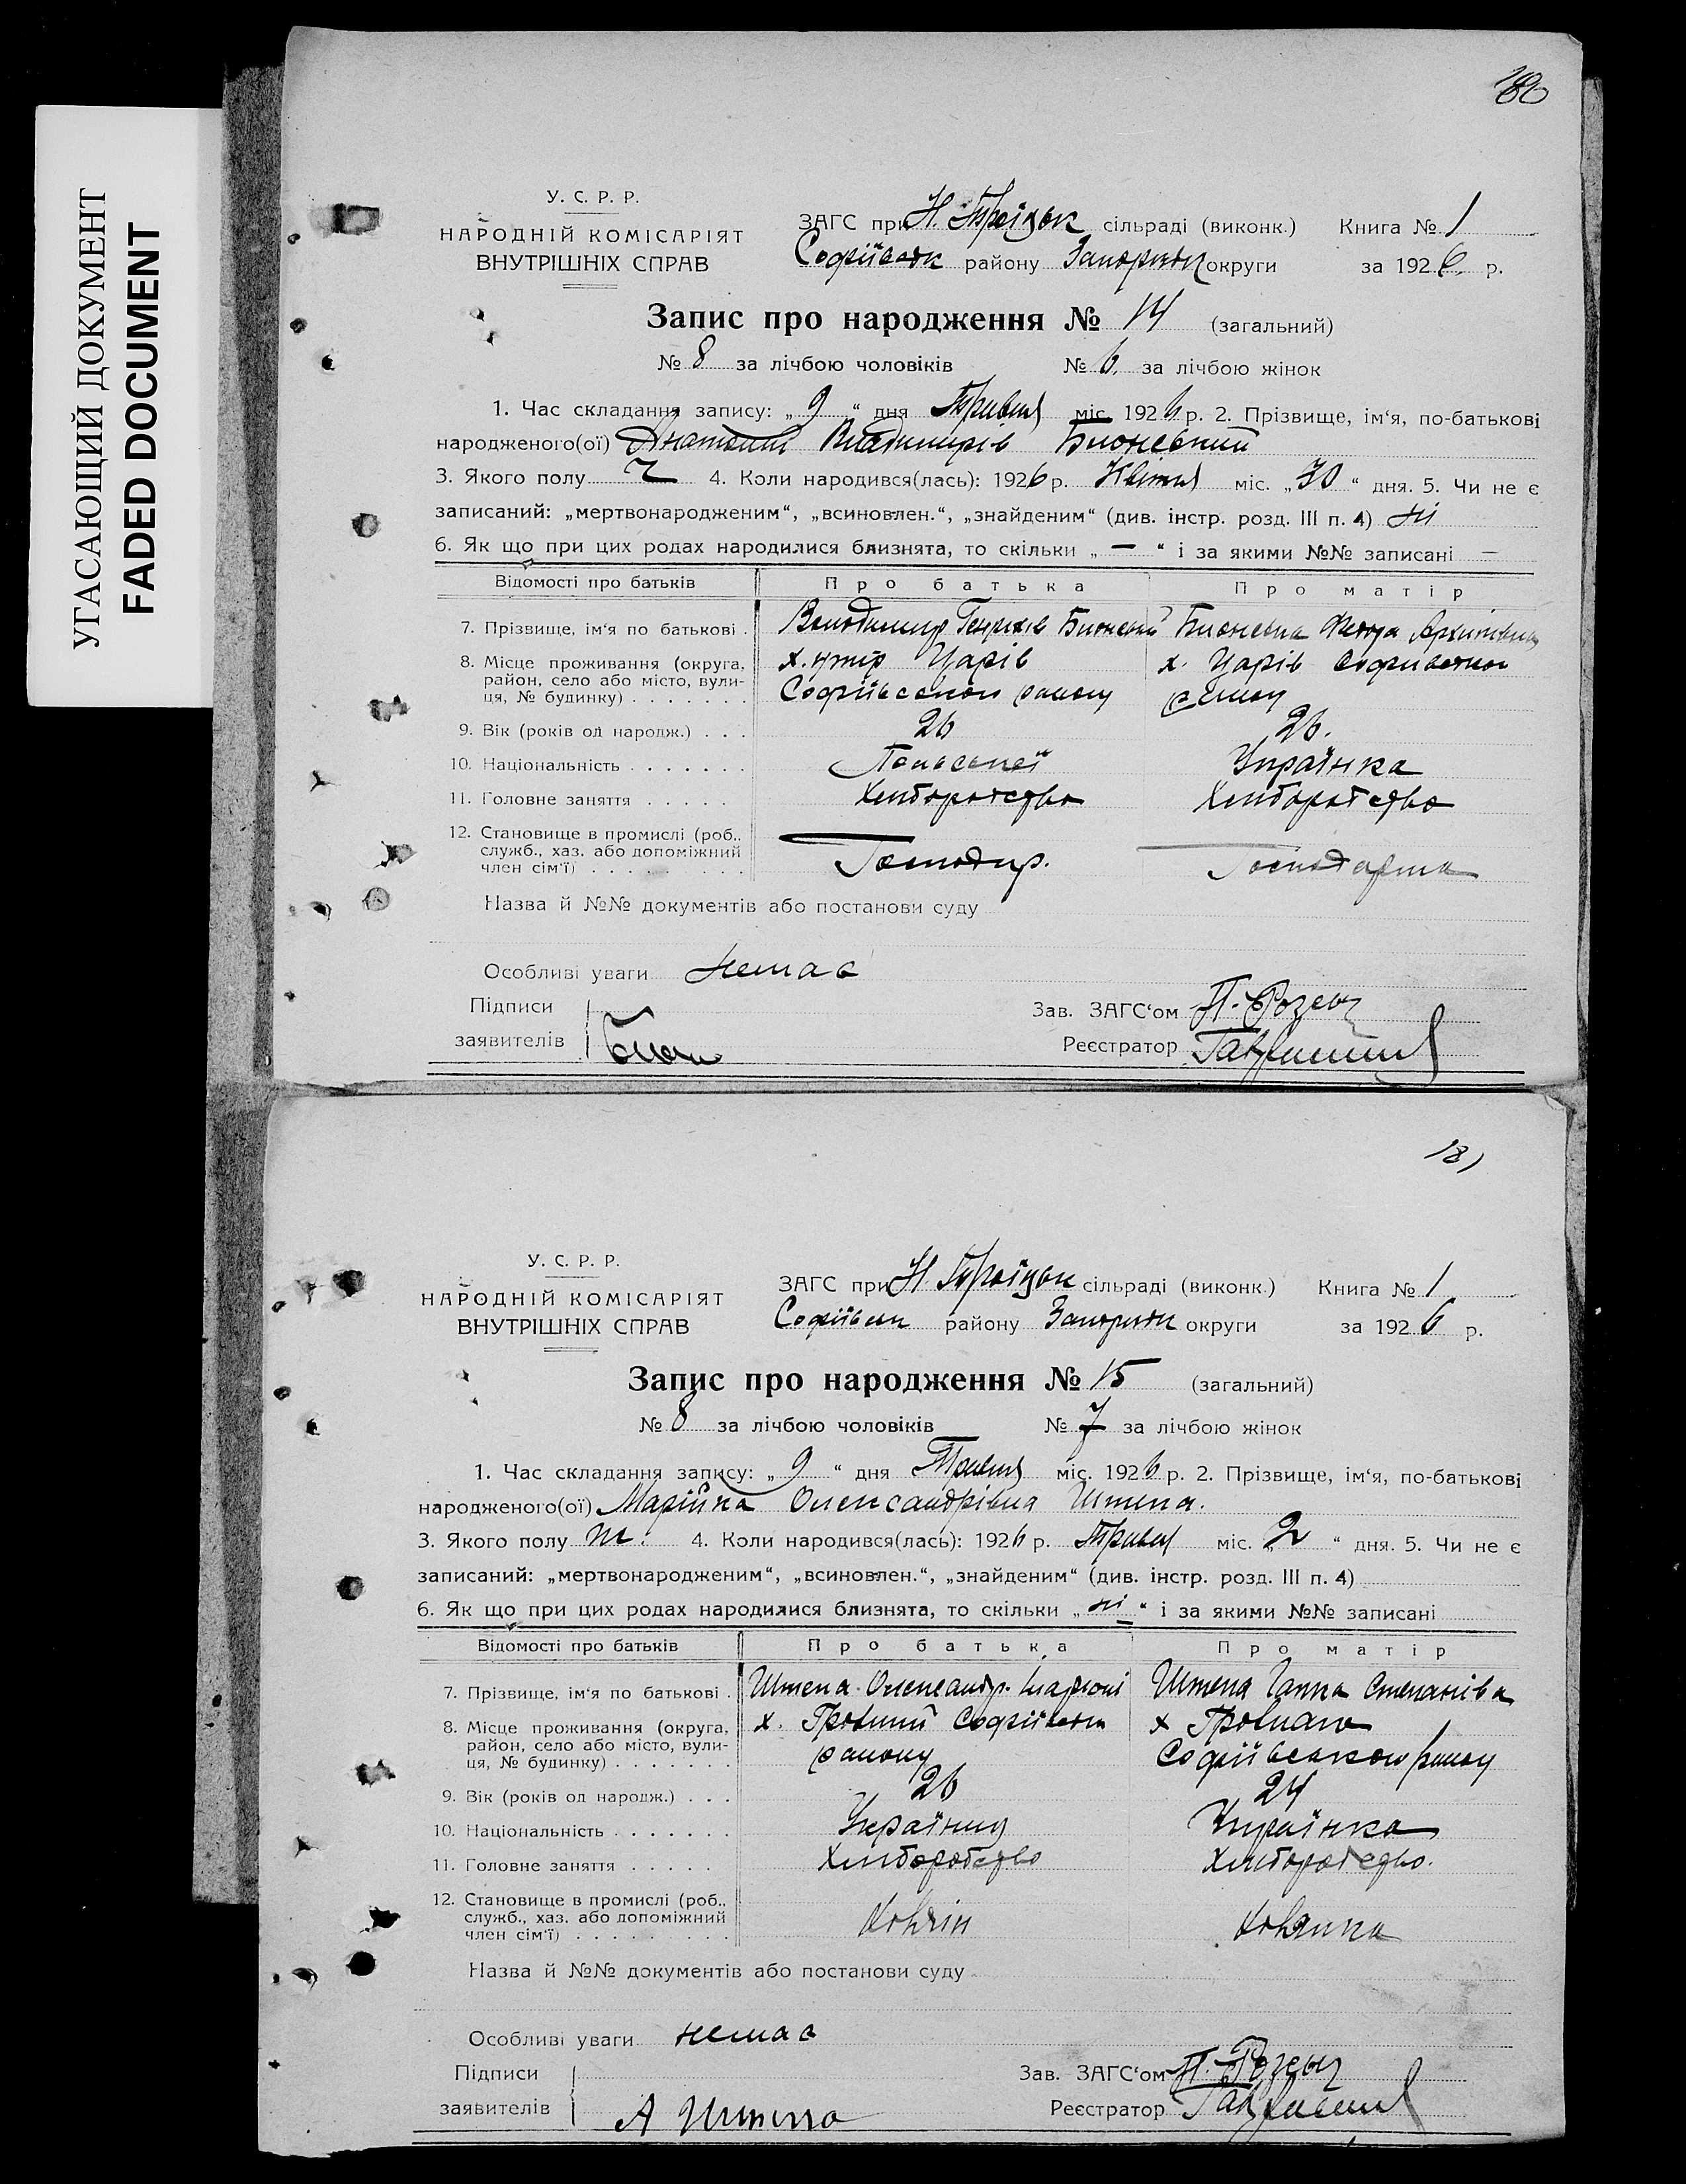 УГАСАЮЩИЙ ДОКУМЕНТ
FADED DOCUMENT
180
У. С. Р. Р.
НАРОДНІЙ КОМІСАРІЯТ
ВНУТРІШНІХ СПРАВ
ЗАГС при Н. Троїцьк сільраді (виконк.) Книга № 1
Софіївськ району Запоріжськ округи за 1926 р.
Запис про народження № 14 (загальний)
№ 8 за лічбою чоловіків № 6. за лічбою жінок
1. Час складання запису: „ 9 “ дня Травня міс. 1926 р. 2. Прізвище, ім‘я, по-батькові
народженого(ої) Анатолій Владимирів
3. Якого полу ч 4. Коли народився(лась): 1926 р. Квітня міс. „ 30 “ дня. 5. Чи не є
записаний: „мертвонародженим“, „всиновлен.“, „знайденим“ (див. інстр. розд. III п. 4) ні
6. Як що при цих родах народилися близнята, то скільки „ — “ і за якими №№ записані —
Відомості про батьків Про батька Про матір
7. Прізвище, ім‘я по батькові . Володимир Генрихів
8. Місце проживання (округа, х. Царів х. Царів
район, село або місто, вули- Софіївського району району
ця, № будинку) . . . . . . .
9. Вік (років од народж.) . . . 26 26.
10. Національність . . . . . . . Українка
11. Головне заняття . . . . . Хліборобство Хліборобство
12. Становище в промислі (роб.,
служб., хаз. або допоміжний Господар. Господарка
член сім‘ї) . . . . . . . .
Назва й №№ документів або постанови суду
Особливі уваги немає
Підписи
заявителів
Зав. ЗАГС‘ом
Реєстратор
181
У. С. Р. Р.
НАРОДНІЙ КОМІСАРІЯТ
ВНУТРІШНІХ СПРАВ
ЗАГС при Н. Троїцьк сільраді (виконк.) Книга № 1
Софіївськ району Запоріжськ округи за 1926 р.
Запис про народження № 15 (загальний)
№ 8 за лічбою чоловіків № 7 за лічбою жінок
1. Час складання запису: „ 9 “ дня Травня міс. 1926 р. 2. Прізвище, ім‘я, по-батькові
народженого(ої) Марійка Олександрівна Штепа.
3. Якого полу ж. 4. Коли народився(лась): 1926 р. Травня міс. „ 2 “ дня. 5. Чи не є
записаний: „мертвонародженим“, „всиновлен.“, „знайденим“ (див. інстр. розд. III п. 4)
6. Як що при цих родах народилися близнята, то скільки „ ні “ і за якими №№ записані
Відомості про батьків Про батька Про матір
7. Прізвище, ім‘я по батькові . Штепа Олександр. Штепа Ганна Степанівна
8. Місце проживання (округа, х.
район, село або місто, вули- району Софіївського району
ця, № будинку) . . . . . . .
9. Вік (років од народж.) . . . 26 24
10. Національність . . . . . . . Українець Українка
11. Головне заняття . . . . . Хліборобство Хліборобство.
12. Становище в промислі (роб.,
служб., хаз. або допоміжний
член сім‘ї) . . . . . . . .
Назва й №№ документів або постанови суду
Особливі уваги немає
Підписи
заявителів А Штепа
Зав. ЗАГС‘ом
Реєстратор